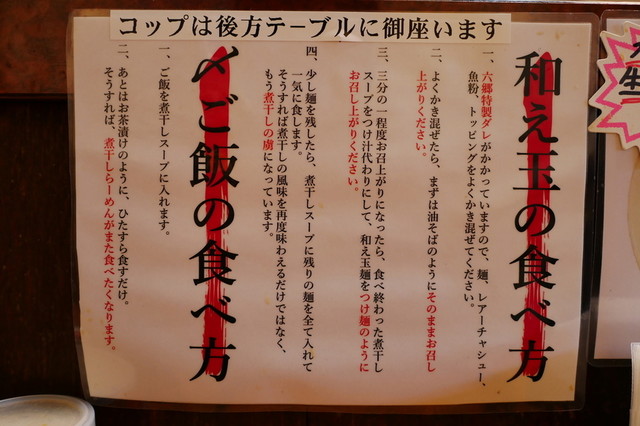 コップは後方テーブルに御座います
和え玉の食べ方
一、六郷特製ダレがかかっていますので、麺、レアーチャシュー、
魚粉、トッピングをよくかき混ぜてください。
二、よくかき混ぜたら、まずは油そばのようにそのままお召し
上がりください。
三、三分の一程度お召上がりになったら、食べ終わった煮干し
スープをつけ汁代わりにして、和え玉麺をつけ麺のように
お召し上がりください。
四、少し麺を残したら、煮干しスープに残りの麺を全て入れて
一気に食します。
そうすれば煮干しの風味を再度味わえるだけではなく、
もう煮干しの虜になっています。
〆ご飯の食べ方
一、ご飯を煮干しスープに入れます。
二、あとはお茶漬けのように、ひたすら食すだけ。
そうすれば、煮干しらーめんがまた食べたくなります。